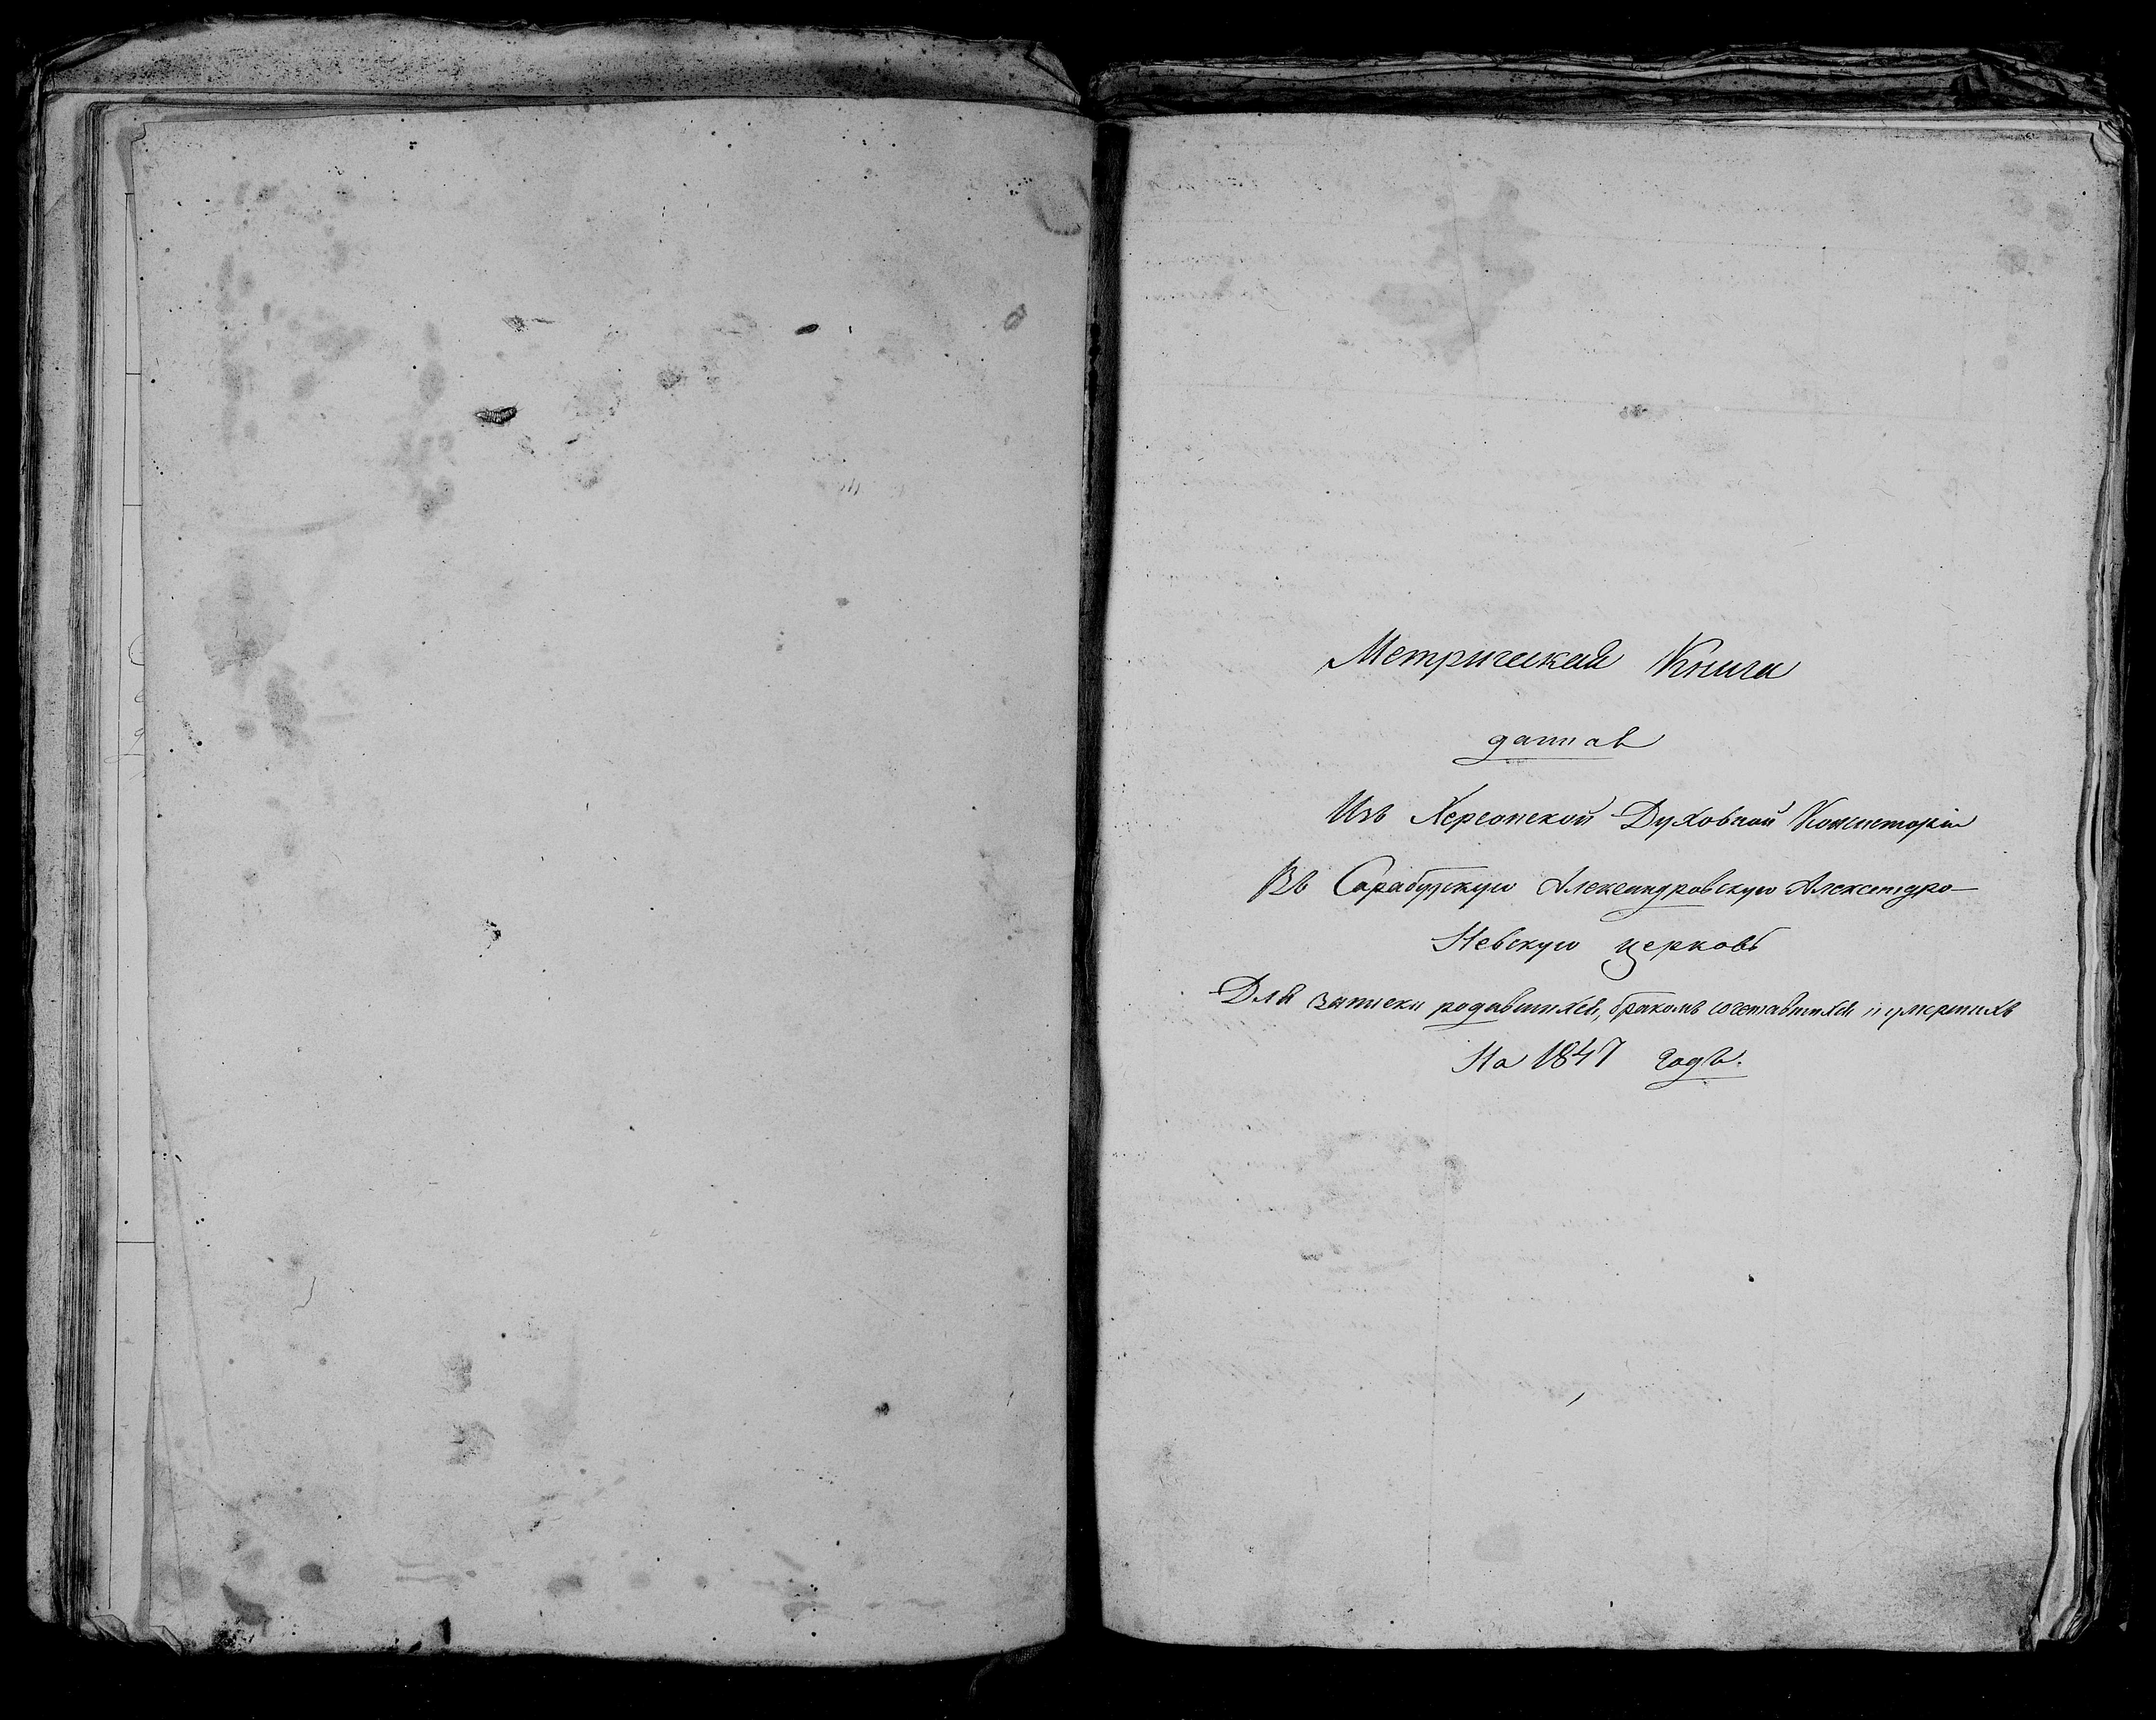 Метрическая Книга
данная
Изъ Херсонской Духовной Консисторіи
Въ Сарабузскую Александровскую Александро-
Невскую церковь
Для записки родившихся, бракомъ сочетавшихся и умершихъ
На 1847 годъ.